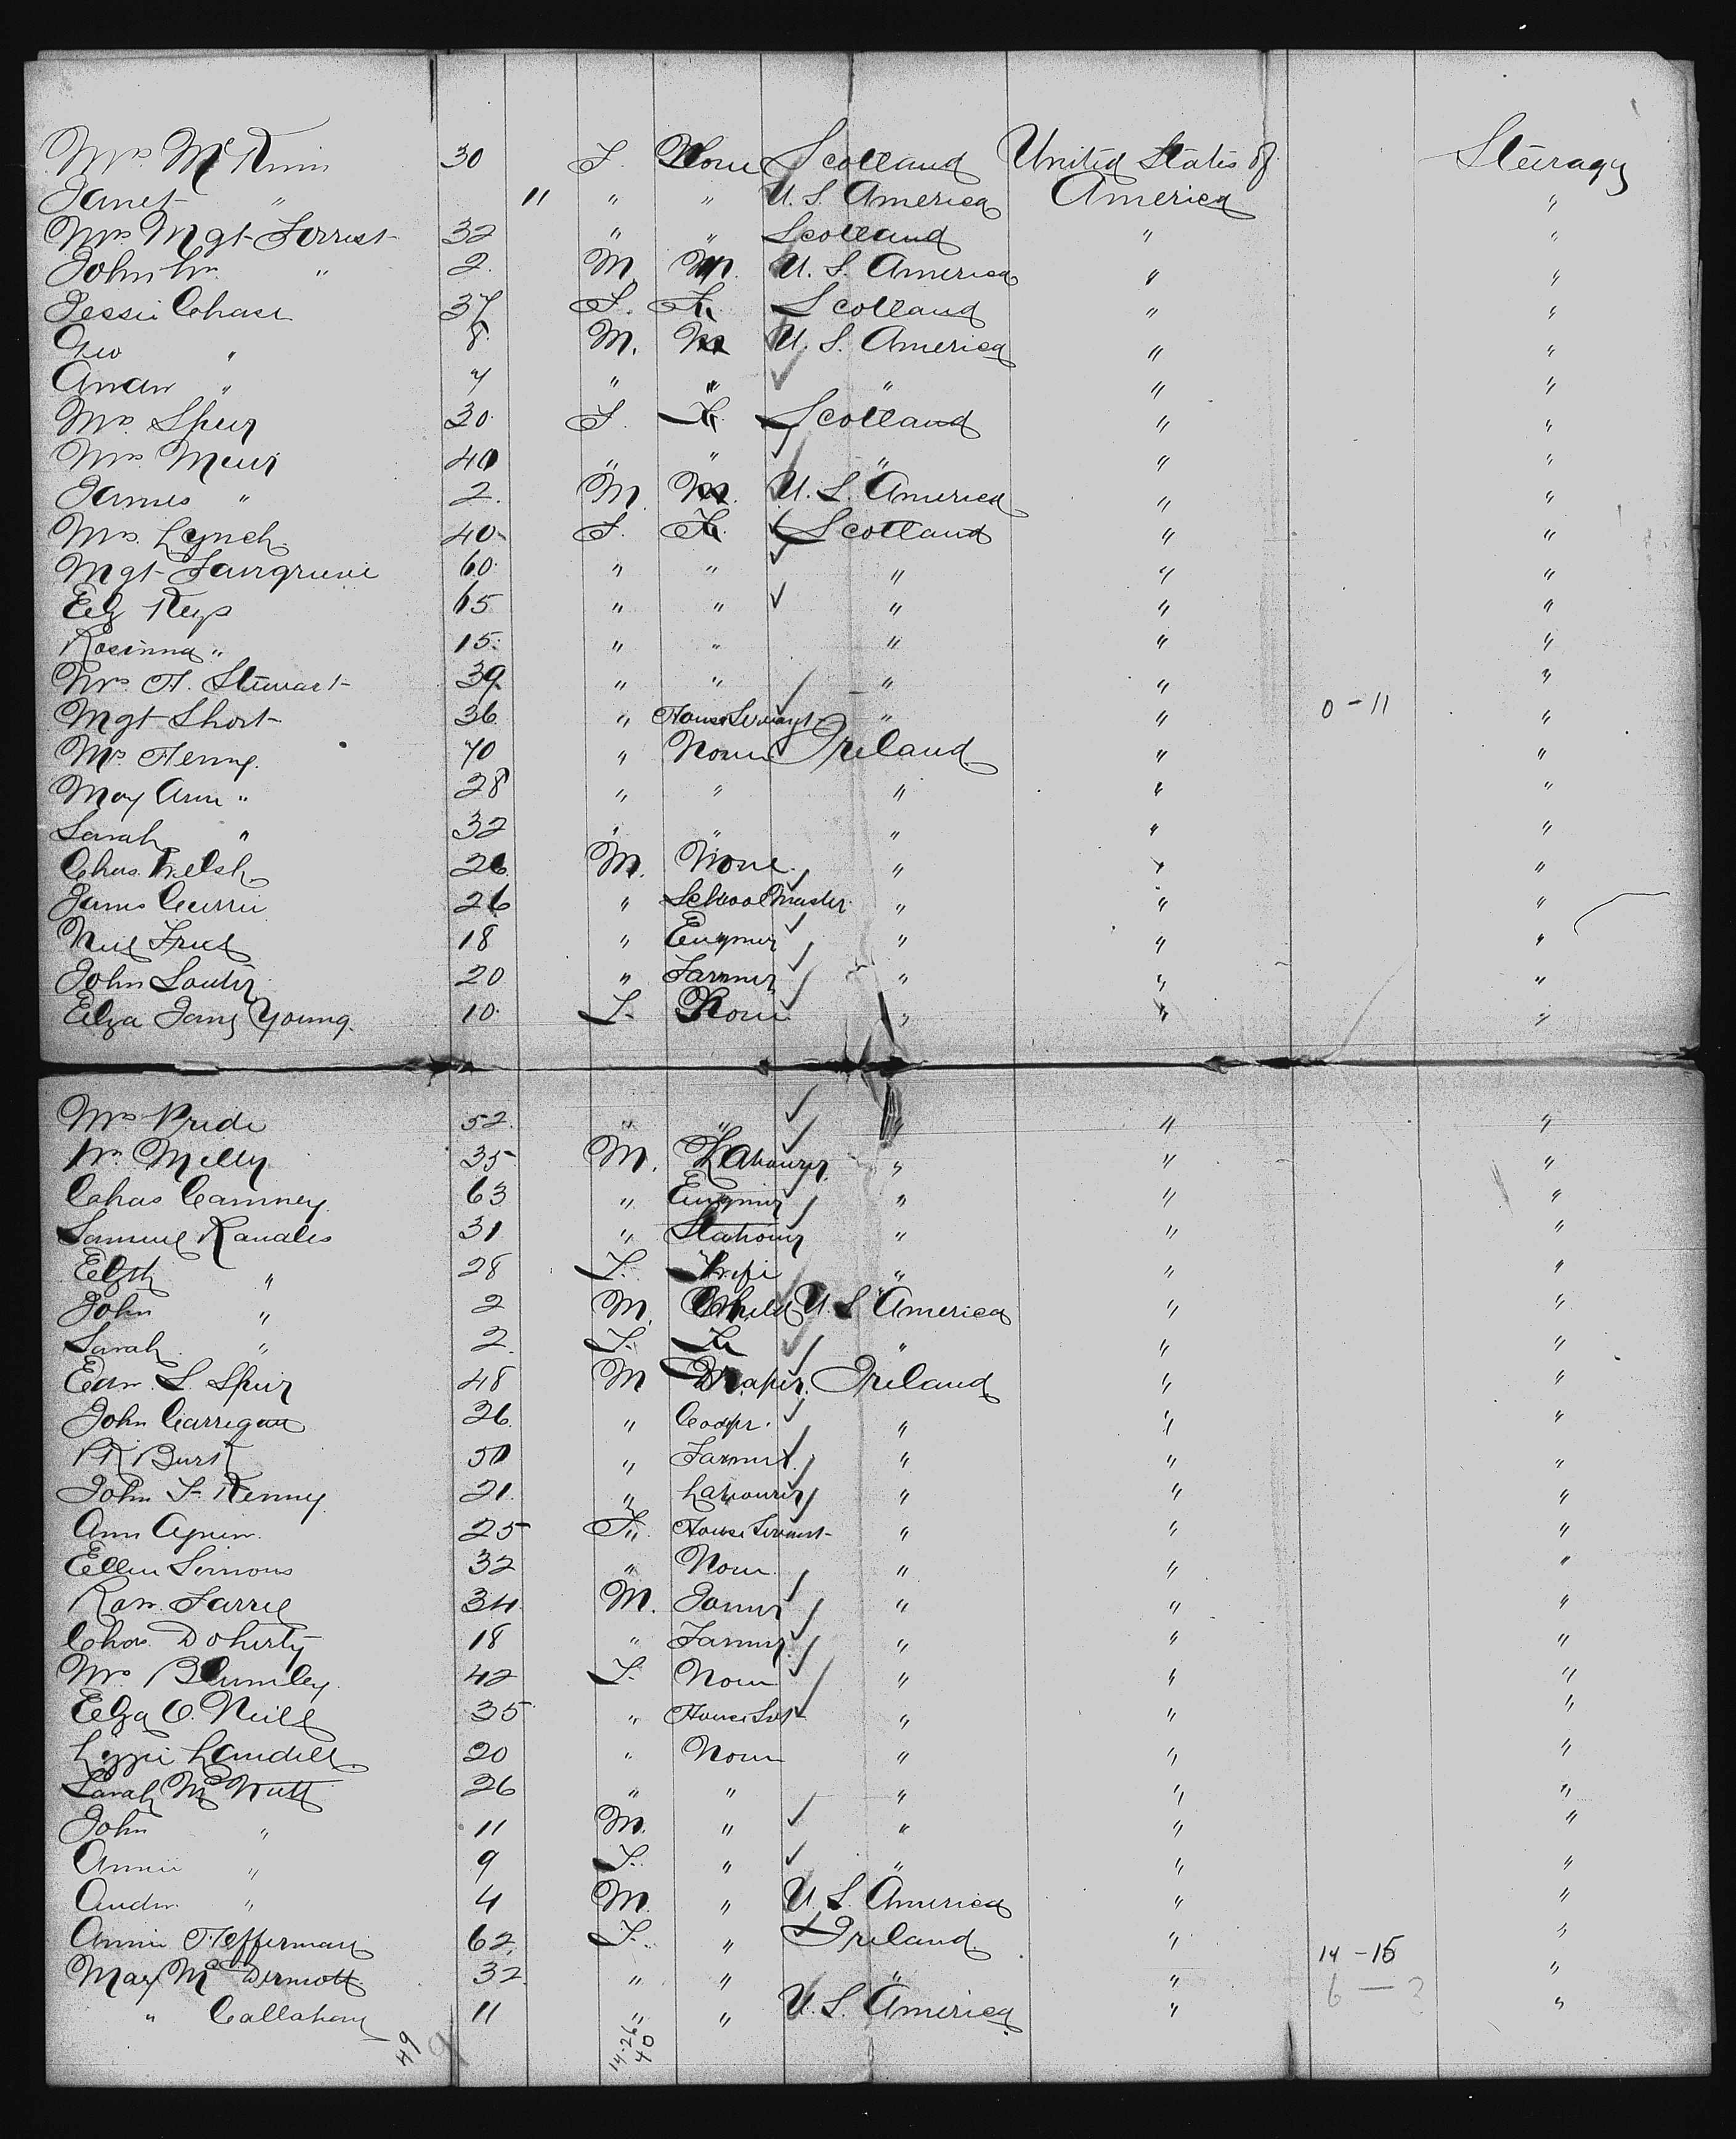 Mrs McKinn 30 F. None Scotland United States of Steerage
Janet " 11 " " U.S. America America "
Mrs Mgt Forrest 32 " " Scotland " "
John Wm " 2. M. M. U.S. America " "
Jessie Chase 37 F. F. Scotland " "
Geo " 8 M. M U.S. America " "
Andw " 7 " " " " "
Mrs Speir 30 F. F. Scotland " "
Mrs Muir 40 " " " " "
James " 2. M. M. U.S. America " "
Mrs Lynch 40 F. F. Scotland " "
Mgt Fairgrieve 60 " " " " "
Elz Keys 65 " " " " "
Rosinna " 15 " " " " "
Mrs H. Stewart 39 " " " " "
Mgt Short 36 " House Servant " " 0-11 "
Mrs Henry 70 " None Ireland " "
May Ann " 28 " " " " "
Sarah " 32 " " " " "
Chas. Welsh 26 M. None " " "
James Currie 26 " School Master " " "
Neil Friel 18 " Engineer " " "
John Souter 20 " Farmer " " "
Eliza Jane Young 10 F. None " " "
Mrs Pride 52 " " " " "
Wm 35 M. Labourer " " "
Chas Camney 63 " Engineer " " "
Samuel Randles 31 " Stationer " " "
Elzth " 28 F. Wife " " "
John " 2 M. Child U.S. America " "
Sarah " 2. F. " " "
Edw. S. Speir 48 M Draper Ireland " "
John Carrigan 26 " Cooper " " "
PK Burk 50 " Farmer " " "
John F. Kenny 21 " Labourer " " "
Ann Agnew 25 F. House Servant " " "
Ellen Simons 32 " None " " "
Farrel 34 M. " " "
Chas. Doherty 18 " Farmer " " "
Mrs Blumley 42 F. None " " "
Elza O. Neill 35 " House Svt " " "
Lizzie Landell 20 " None " " "
Sarah McNutt 26 " " " " "
John " 11 M. " " " "
Annie " 9 F. " " " "
Andw. " 4 M. " U.S. America " "
Annie Heffernan 62 F. " Ireland " 14-15 "
May McDermott 32 " " " " 6 — "
" Callahan 11 " " U.S. America " "
49 14-26
40